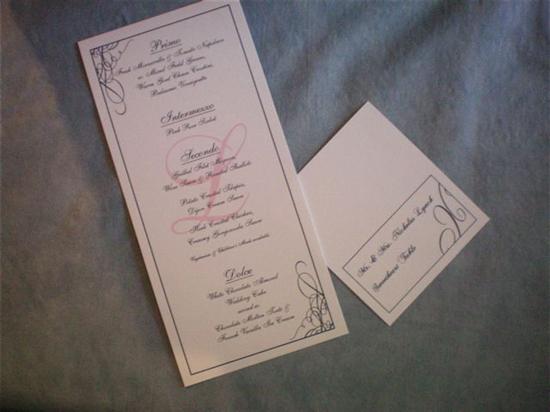 Primo
Fresh Mozzarella & Tomato Napoleon
w. Mixed Field Greens,
Warm Goat Cheese Croutons,
Balsamic Vinaigrette
Intermezzo
Pink Rose Sorbet
Secondo
Grilled Filet Mignon,
Wine Sauce & Roasted Shallots
Potato Crusted Tilapia,
Dijon Cream Sauce
Herb Crusted Chicken,
Creamy Gorgonzola Sauce
Vegetarian & Children's Meals available
L
Dolce
White Chocolate Almond
Wedding Cake
served w.
Chocolate Molten Torte &
French Vanilla Ice Cream
Mr. & Mrs. Nicholas Lynch
Sweetheart Table